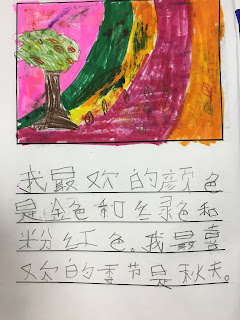 我最欢的颜色
是金色和绿色和
粉红色。我最喜
欢的季节是秋天。